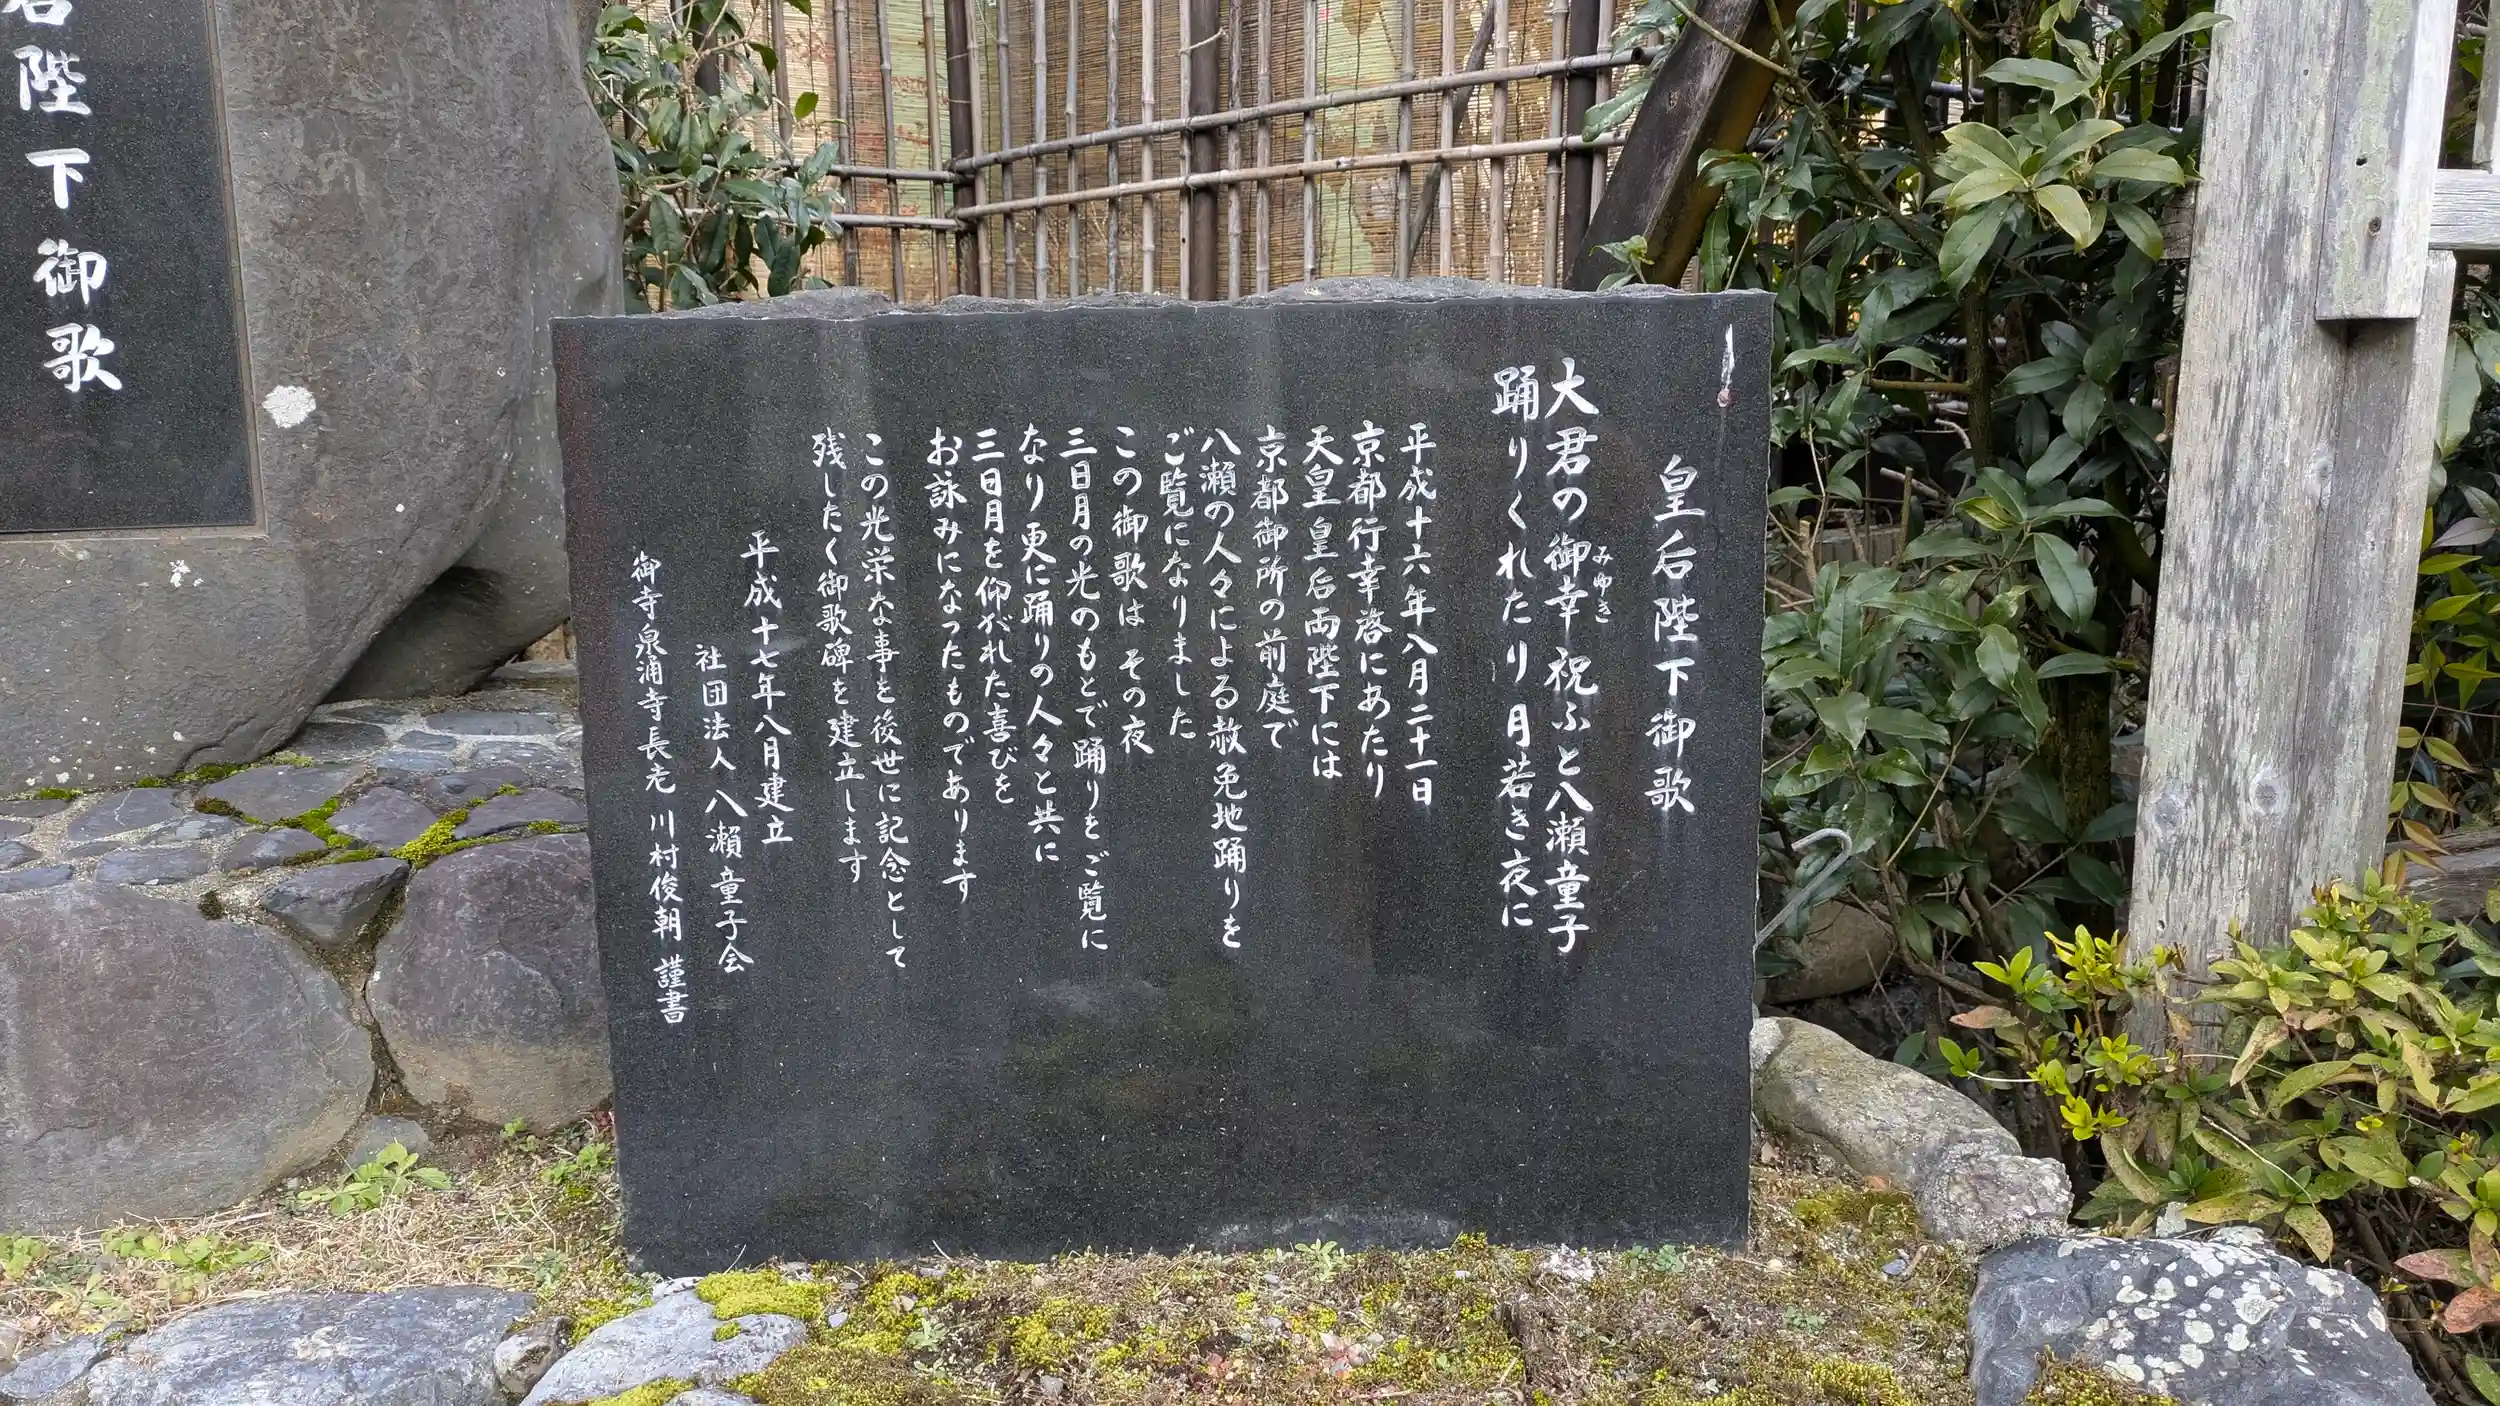 皇后陛下御歌
大君の御幸祝ふと八瀬童子
みゆき
踊りくれたり月若き夜に
平成十六年八月二十一日
京都行幸啓にあたり
天皇皇后両陛下には
京都御所の前庭で
八瀬の人々による赦免地踊りを
ご覧になりました
この御歌は その夜
三日月の光のもとで踊りをご覧に
なり更に踊りの人々と共に
三日月を仰がれた喜びを
お詠みになったものであります
この光栄な事を後世に記念として
残したく御歌碑を建立します
平成十七年八月建立
社団法人八瀬童子会
御寺泉涌寺長老 川村俊朝 謹書
陛下御歌